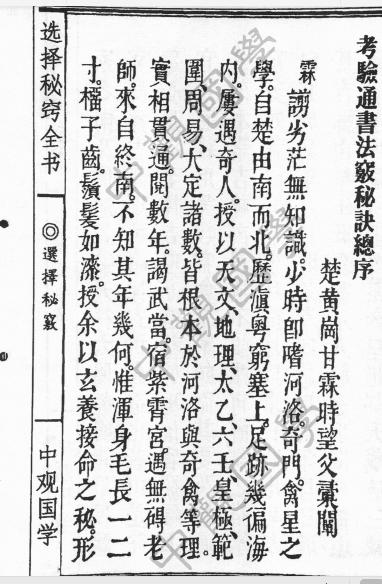 考驗通書法竅秘訣總序
楚黄崗甘霖時望父彚闡
霖謭劣茫無知識。少時卽嗜河洛。奇門。禽星之
學。自楚由南而北。歷滇粤窮塞上。足跡幾徧海
内。屢遇奇人。授以天文。地理。太乙。六壬。皇極。範
圍。周易。大定諸數。皆根本於河洛與奇禽等理。
實相貫通。閱數年。謁武當。宿紫霄宮。遇無碍老
師。來自終南。不知其年幾何。惟渾身毛長一二
寸。櫺子齒。鬚髪如漆。授余以玄養接命之秘。形
选择秘窍全书
◎選擇秘竅
中观国学
中觀國學
中觀國學
中觀國學